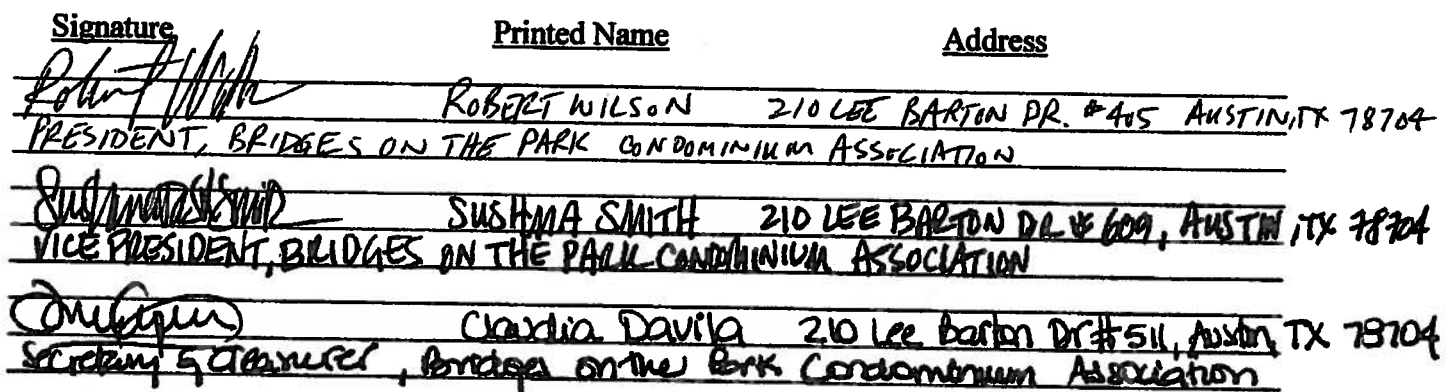 Signature Printed Name Address
Robert Wilson ROBERT WILSON 210 LEE BARTON DR. #405 AUSTIN, TX 78704
PRESIDENT, BRIDGES ON THE PARK CONDOMINIUM ASSOCIATION
SUSHMA SMITH 210 LEE BARTON DR # 609, AUSTIN, TX 78704
VICE PRESIDENT, BRIDGES ON THE PARK CONDOMINIUM ASSOCIATION
Claudia Davila 210 Lee Barton Dr #511, Austin, TX 78704
Secretary & Treasurer, Bridges on the Park Condominium Association